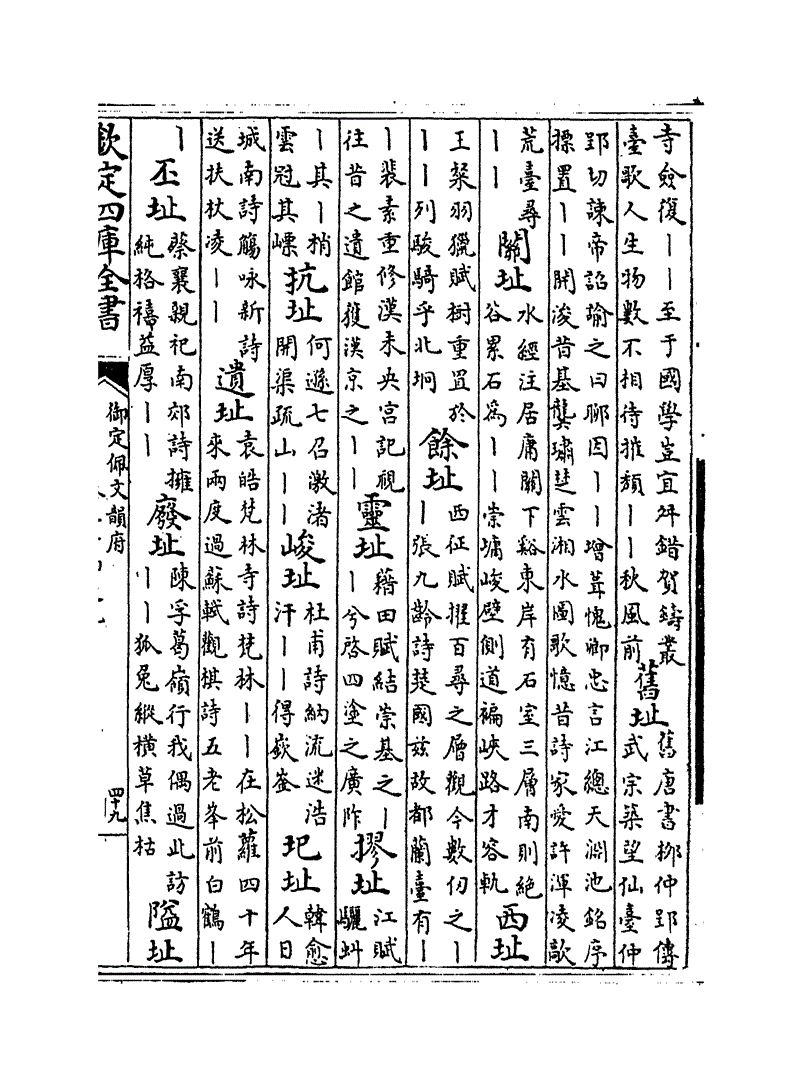 寺僉復｜｜至于國學豈宜舛錯賀鑄叢
臺歌人生物數不相待摧頹｜｜秋風前
舊址
舊唐書栁仲郢傳
武宗築望仙臺仲
郢切諫帝詔諭之曰聊因｜｜增葺愧卿忠言江總天淵池銘序
摽置｜｜開浚昔基龔璛楚雲湘水圖歌憶昔詩家愛許渾凌歊
荒臺尋
｜｜
關址
水經注居庸關下谿東岸有石室三層南則絶
谷累石為｜｜崇墉峻壁側道褊峽路才容軌
西址
王粲羽獵賦樹重置於
｜｜列駿騎乎北坰
餘址
西征賦擢百尋之層觀今數仞之｜
｜張九齡詩楚國兹故都蘭臺有｜
｜裴素重修漢未央宫記視
往昔之遺館獲漢京之｜｜
靈址
藉田賦結崇基之｜
｜兮啓四塗之廣阼
摎址
江賦
驪虬
｜其｜梢
雲冠其㟽
抗址
何遜七召激渚
開渠疏山｜｜
峻址
杜甫詩納流迷浩
汗｜｜得嶔崟
圯址
韓愈
人日
城南詩觴咏新詩
送扶杖凌｜｜
遺址
袁皓梵林寺詩梵林｜｜在松蘿四十年
來兩度過蘇軾觀棋詩五老峯前白鶴｜
｜
丕址
蔡襄親祀南郊詩擁
純格禧益厚｜｜
廢址
陳孚葛嶺行我偶過此訪
｜｜狐兔縱横草焦枯
隘址
欽定四庫全書
御定佩文韻府
四十九